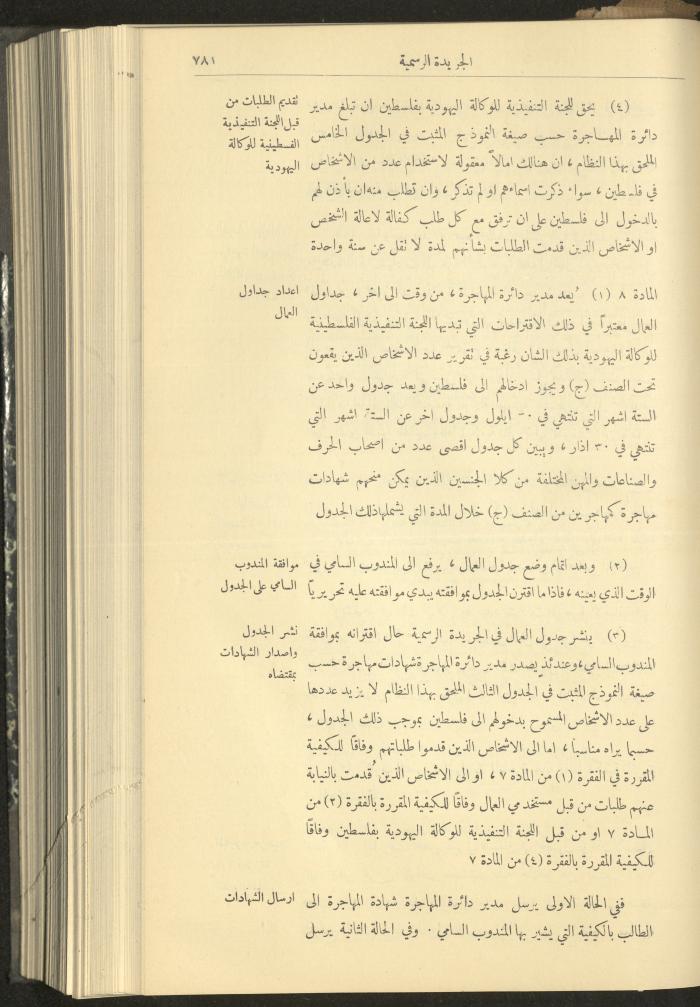 الجريدة الرسمية
٧٨١
(٤) يحق للجنة التنفيذية للوكالة اليهودية بفلسطين ان تبلغ مدير
دائرة المهاجرة حسب صيغة النموذج المثبت في الجدول الخامس
الملحق بهذا النظام ، ان هنالك امالاً معقولة لاستخدام عدد من الاشخاص
في فلسطين ، سواء ذكرت اسماءهم او لم تذكر ، وان تطلب منه ان يأذن لهم
بالدخول الى فلسطين على ان ترفق مع كل طلب كفالة لاعالة الشخص
او الاشخاص الذين قدمت الطلبات بشأنهم لمدة لا تقل عن سنة واحدة
تقديم الطلبات من
قبل اللجنة التنفيذية
الفلسطينية للوكالة
اليهودية
المادة ٨ (١) يُعد مدير دائرة المهاجرة ، من وقت الى اخر ، جداول
العمال معتبراً في ذلك الاقتراحات التي تبديها اللجنة التنفيذية الفلسطينية
للوكالة اليهودية بذلك الشان رغبة في تقرير عدد الاشخاص الذين يقعون
تحت الصنف (ج) ويجوز ادخالهم الى فلسطين ويعد جدول واحد عن
الستة اشهر التي تنتهي في ٣٠ ايلول وجدول اخر عن الستة اشهر التي
تنتهي في ٣٠ اذار ، ويبين كل جدول اقصى عدد من اصحاب الحرف
والصناعات والمهن المختلفة من كلا الجنسين الذين يمكن منحهم شهادات
مهاجرة كمهاجرين من الصنف (ج) خلال المدة التي يشملها ذلك الجدول
اعداد جداول
العمال
(٢) وبعد اتمام وضع جدول العمال ، يرفع الى المندوب السامي في
الوقت الذي يعينه ، فاذا ما اقترن الجدول بموافقته يبدي موافقته عليه تحريريًا
موافقة المندوب
السامي على الجدول
(٣) ينشر جدول العمال في الجريدة الرسمية حال اقترانه بموافقة
المندوب السامي ، وعندئذ يصدر مدير دائرة المهاجرة شهادات مهاجرة حسب
صيغة النموذج المثبت في الجدول الثالث الملحق بهذا النظام لا يزيد عددها
على عدد الاشخاص المسموح بدخولهم الى فلسطين بموجب ذلك الجدول ،
حسبما يراه مناسباً ، اما الى الاشخاص الذين قدموا طلباتهم وفاقًا للكيفية
المقررة في الفقرة (١) من المادة ٧ ، او الى الاشخاص الذين قُدمت بالنيابة
عنهم طلبات من قبل مستخدمي العمال وفاقًا للكيفية المقررة بالفقرة (٢) من
المادة ٧ او من قبل اللجنة التنفيذية للوكالة اليهودية بفلسطين وفاقًا
للكيفية المقررة بالفقرة (٤) من المادة ٧
نشر الجدول
واصدار الشهادات
بمقتضاه
ففي الحالة الاولى يرسل مدير دائرة المهاجرة شهادة المهاجرة الى
الطالب بالكيفية التي يشير بها المندوب السامي . وفي الحالة الثانية يرسل
ارسال الشهادات